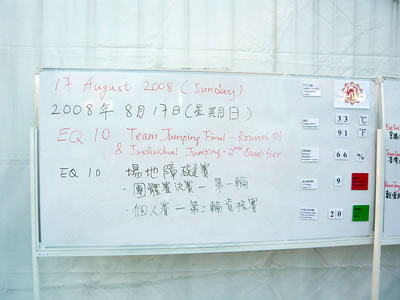 17 August 2008 (Sunday)
2008年8月17日(星期日)
EQ 10 Team Jumping Final - Round 01
& Individual Jumping - 2nd Qualifier
EQ 10 場地障礙賽
- 團體賽決賽 - 第一輪
- 個人賽 - 第二輪資格賽
33 °C
91 °F
66 %
9
20